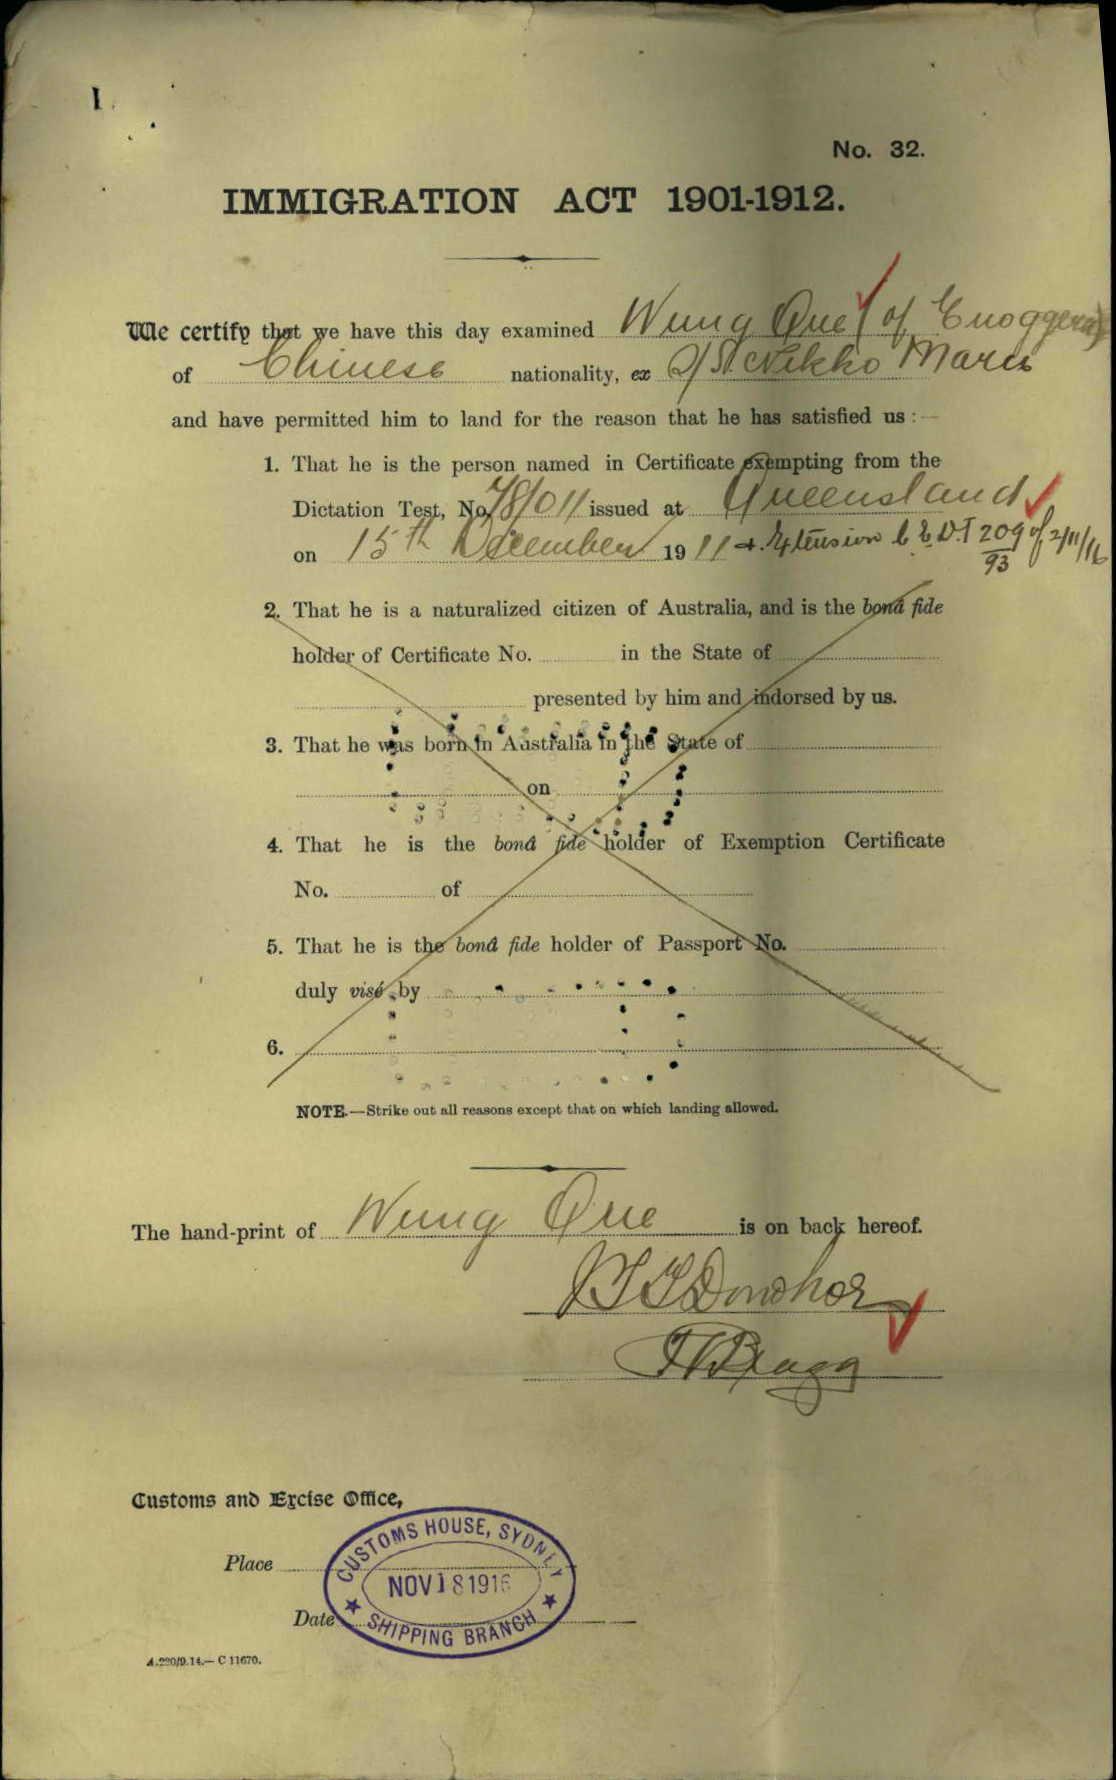 1
No. 32.
IMMIGRATION ACT 1901-1912.
We certify that we have this day examined Wung Que (of Enoggera)
of Chinese nationality, ex S/S. Nikko Maru
and have permitted him to land for the reason that he has satisfied us :—
1. That he is the person named in Certificate exempting from the
Dictation Test, No. 78/011 issued at Queensland
on 15th December 1911 & Extension C.E.D.T 209/93 of 2/11/16
2. That he is a naturalized citizen of Australia, and is the bonâ fide
holder of Certificate No. in the State of
presented by him and indorsed by us.
3. That he was born in Australia in the State of
on
4. That he is the bonâ fide holder of Exemption Certificate
No. of
5. That he is the bonâ fide holder of Passport No.
duly visé by
6.
NOTE.—Strike out all reasons except that on which landing allowed.
The hand-print of Wung Que is on back hereof.
Donohoe
Bragg
Customs and Excise Office,
Place
CUSTOMS HOUSE, SYDNEY
NOV 18 1916
Date
SHIPPING BRANCH
A.220/9.14.— C 11670.